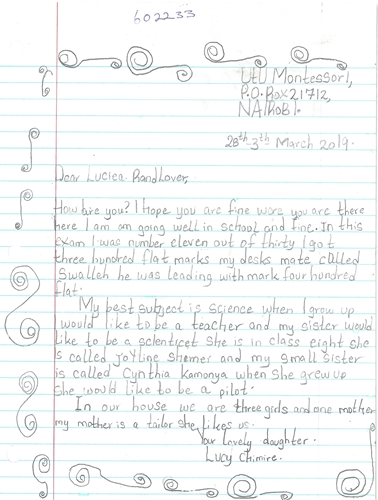 602233
UtU Montessori,
P.O. Box 21712,
NAIROBI.
28th-3th March 2019.
Dear Luciea RandLover,
How are you? I Hope you are fine wors you are there
here I am am going well in school and fine. In this
exam I was number eleven out of thirty I got
three hundred flat marks my desks mate called
Swalleh he was leading with mark four hundred
flat.
My best subject is science when I grow up
would like to be a teacher and my sister would
like to be a scienticet she is in class eight she
is called joyline shemer and my small sister
is called Cynthia Kamonya when she grew up
she would like to be a pilot.
In our house we are three girls and one mother
my mother is a tailor she likes us.
Your Lovely daughter.
Lucy Chimire.